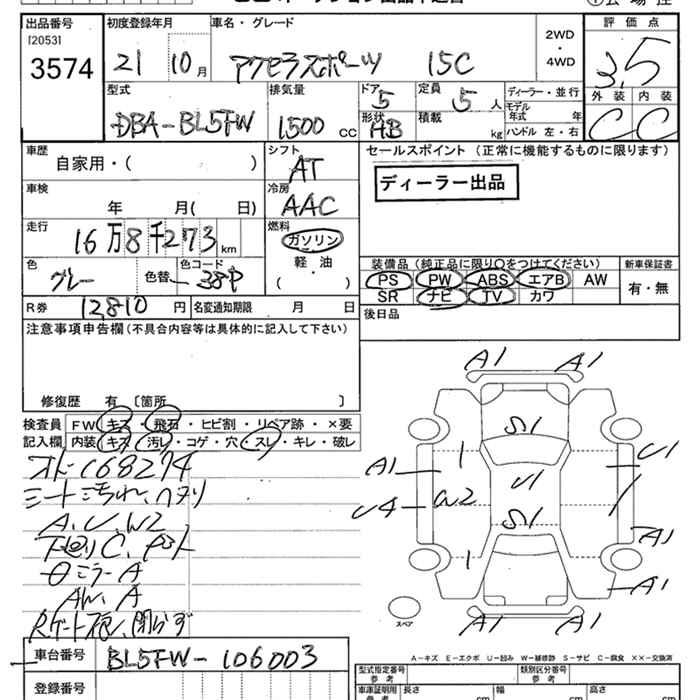 出品番号 初度登録年月 車名・グレード 評価点
[2053]
3574 21 10月 アクセラスポーツ 15C 2WD・4WD 3.5
外装 内装
C C
型式 排気量 ドア 定員 ディーラー・並行
DBA-BL5FW 1500 CC 5 5 人 モデル年式 年
形状 積載 ハンドル 左・右
HB kg
車歴 シフト セールスポイント (正常に機能するものに限ります)
自家用・( ) AT
ディーラー出品
車検 冷房
年 月( 日) AAC
走行 燃料
16万8千273km ガソリン
軽・油
( )
装備品(純正品に限り○をつけてください) 新車保証書
PS PW ABS エアB AW 有・無
SR ナビ TV カワ
色 色替 色コード
グレー 38P
後日品
R券 12,810 円 名変通知期限 月 日
注意事項申告欄(不具合内容等は具体的に記入して下さい)
修復歴 有 [箇所 ]
検査員 FW キズ・飛石・ヒビ割・リペア跡・×要
記入欄 内装 キズ・汚レ・コゲ・穴・スレ・キレ・破レ
シート汚れ、ヘタリ
A、U、W2
下廻りC、
ミラーA
AW、A
閉らず
A1 A1
S1
A1 U1 U1
U4 W2
S1
A1
A1
A1 A1
スペア
A-キズ E-エクボ U-凹み W-補修跡 S-サビ C-腐食 ××-交換済
車台番号 BL5FW-106003
登録番号
型式指定番号 参考 類別区分番号 参考
車庫証明用 参考 長さ cm 幅 cm 高さ cm